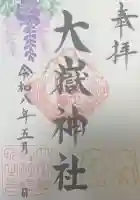 奉拝
大嶽神社
令和八年五月 日